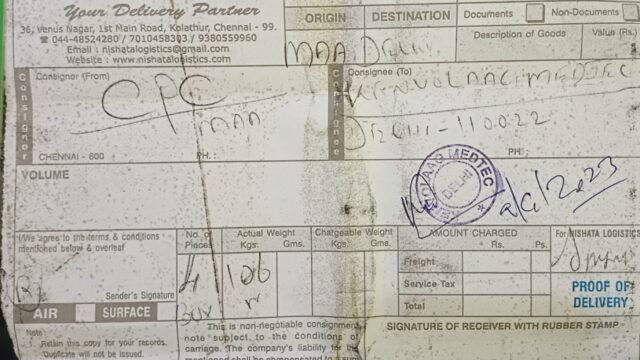 Your Delivery Partner
36, Venus Nagar, 1st Main Road, Kolathur, Chennai - 99.
☎ 044-48524280 / 7010458303 / 9380559960
Email : nishatalogistics@gmail.com
Website : www.nishatalogistics.com
ORIGIN
DESTINATION
Documents
Non-Documents
Description of Goods
Value (Rs.)
MAA
DELHI
Consignor (From)
Consignor
CPC
MAA
CHENNAI - 600
PH. :
Consignee (To)
Consignee
DELHI - 110022
PH. :
VOLUME
MEDTEC
DELHI
I/We agree to the terms & conditions
mentioned below & overleaf
Sender's Signature
AIR
SURFACE
No. of
Pieces
Actual Weight
Kgs.
Gms.
Chargeable Weight
Kgs.
Gms.
4
106
Box
AMOUNT CHARGED
Rs.
Ps.
Freight
Service Tax
Total
For NISHATA LOGISTICS
PROOF OF
DELIVERY
Note :
1. Retain this copy for your records.
Duplicate will not be issued.
This is non-negotiable consignment
note subject to the conditions of
carriage. The company's liability for the
SIGNATURE OF RECEIVER WITH RUBBER STAMP